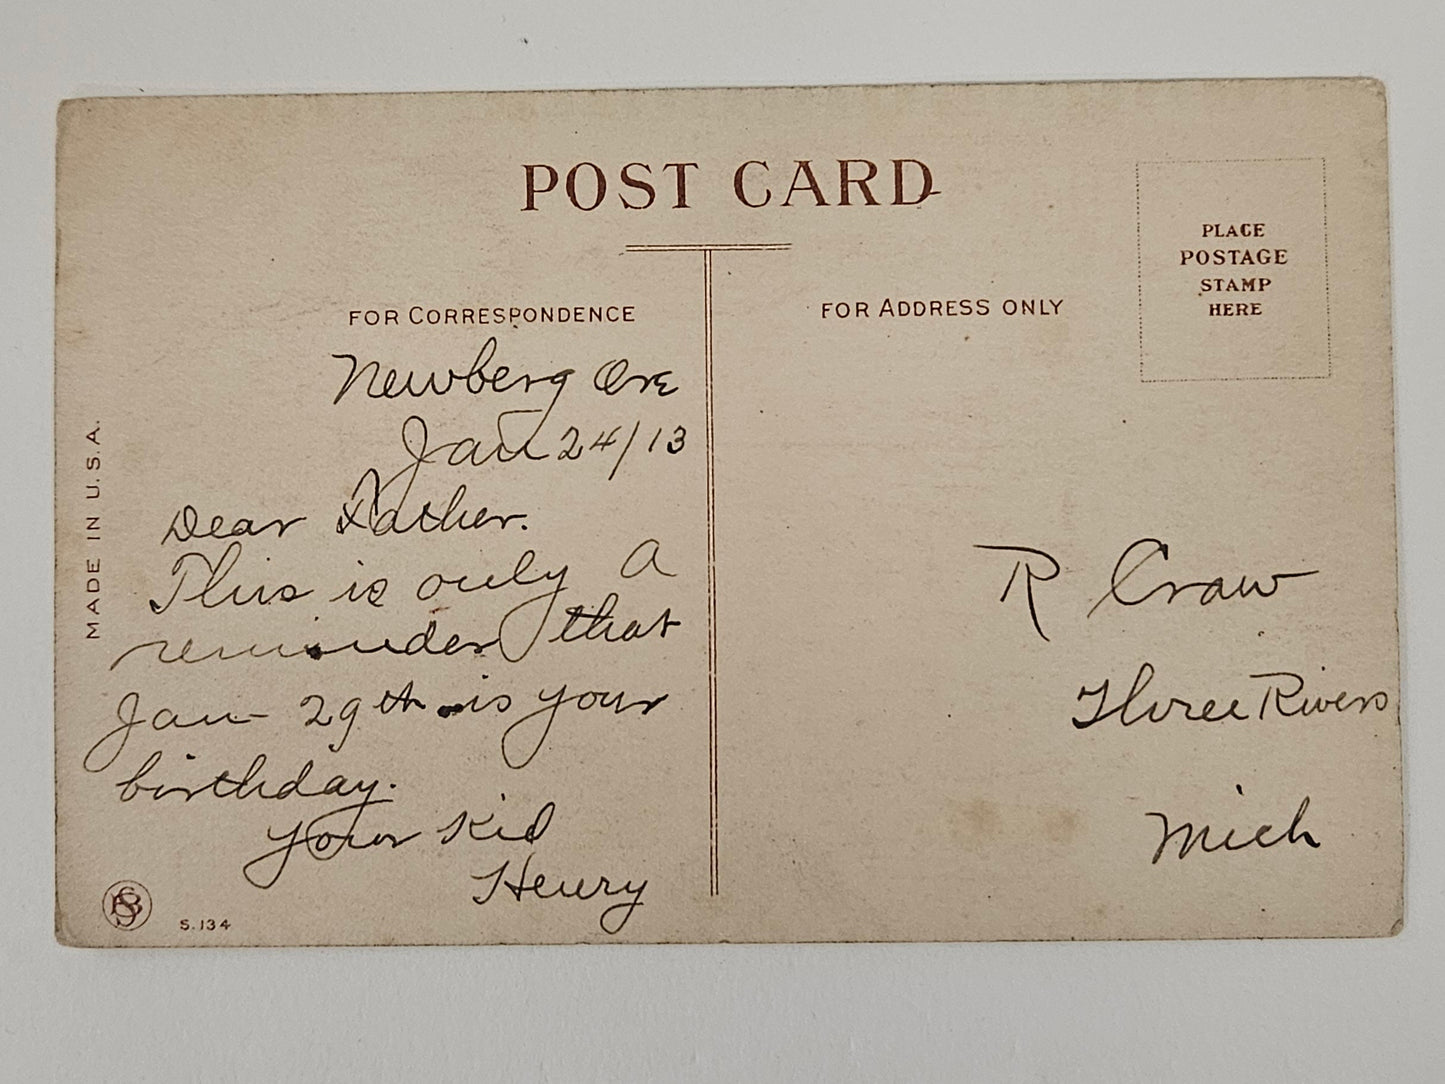 POST CARD
PLACE
POSTAGE
STAMP
HERE
FOR CORRESPONDENCE
Newberg Ore
Jan 24/13
Dear Father.
This is only a
reminder that
Jan 29th is your
birthday.
Your Kid
Henry
FOR ADDRESS ONLY
R Craw
Three Rivers
Mich
MADE IN U.S.A.
S.134